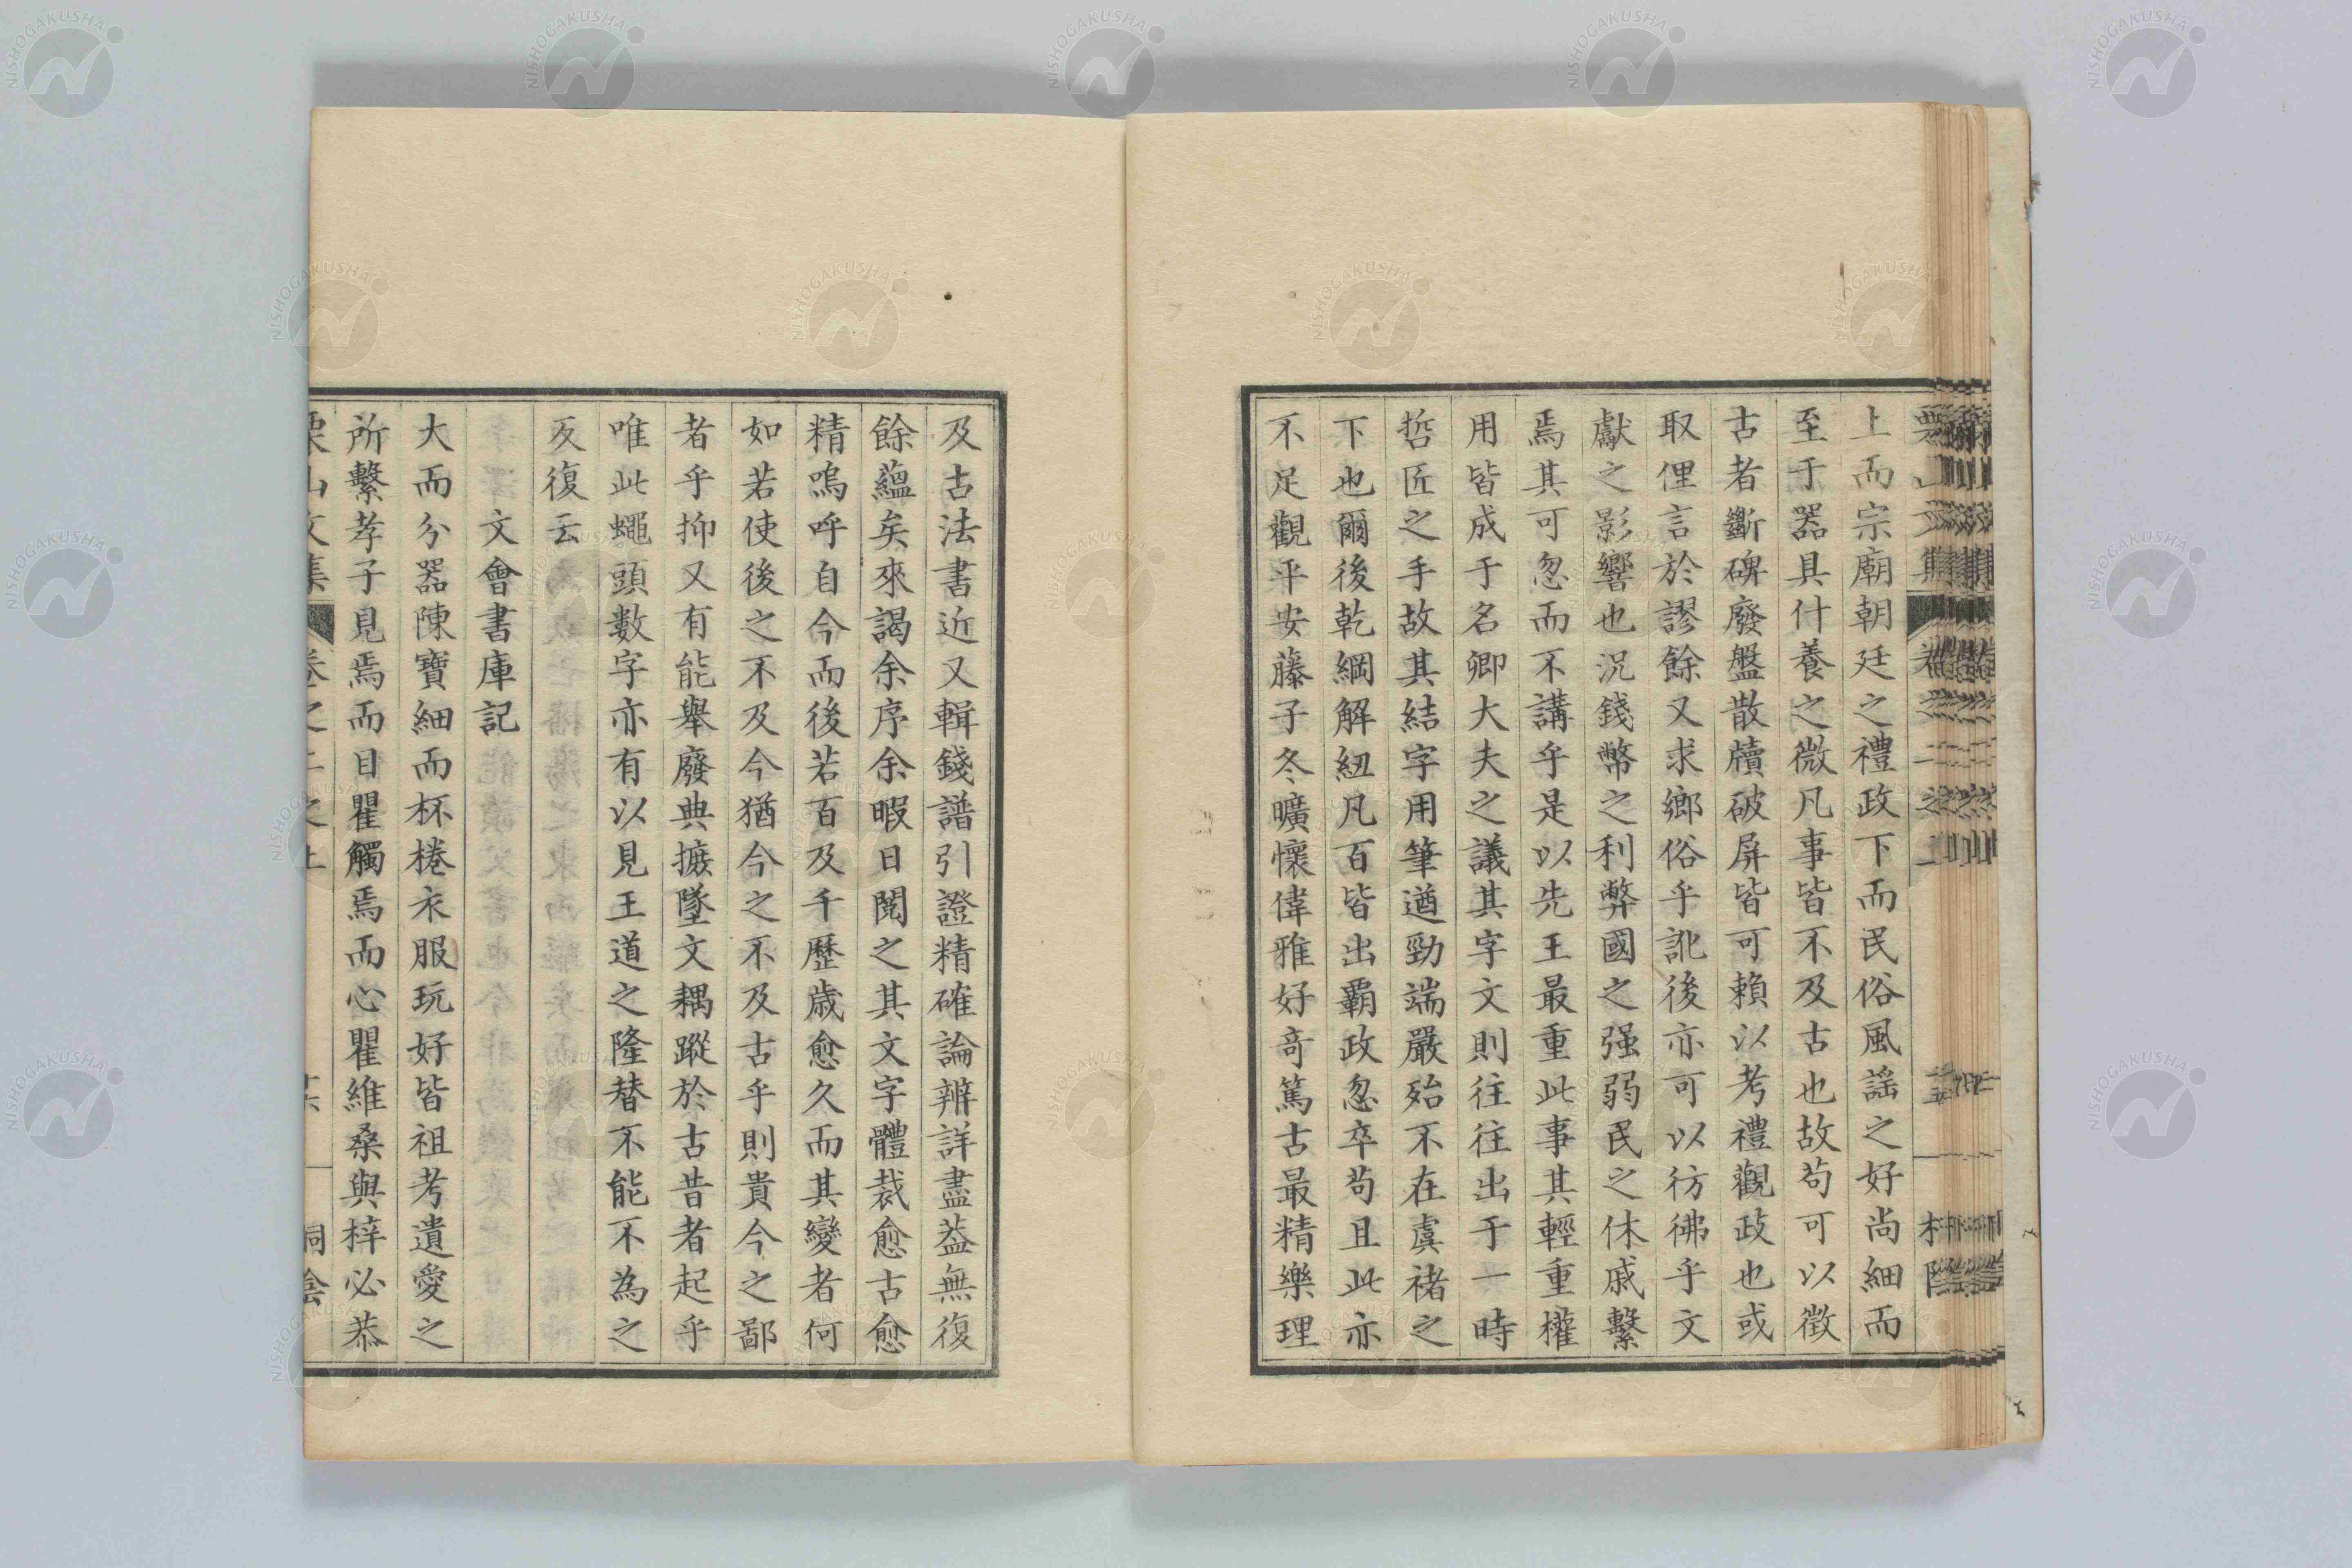 上而宗廟朝廷之禮政下而民俗風謡之好尚細而
至于器具什養之微凡事皆不及古也故苟可以徴
古者斷碑廢盤散牘破屏皆可賴以考禮觀政也或
取俚言於謬餘又求鄉俗乎訛後亦可以彷彿乎文
獻之影響也況錢幣之利弊國之强弱民之休戚繫
焉其可忽而不講乎是以先王最重此事其輕重權
用皆成于名卿大夫之議其字文則往往出于一時
哲匠之手故其結字用筆遒勁端嚴殆不在虞褚之
下也爾後乾綱解紐凡百皆出覇政忽卒苟且此亦
不足觀平安藤子冬曠懷偉雅好竒篤古最精樂理
及古法書近又輯錢譜引證精確論辨詳盡葢無復
餘蘊矣來謁余序余暇日閱之其文字體裁愈古愈
精嗚呼自今而後若百及千歷歳愈久而其變者何
如若使後之不及今猶今之不及古乎則貴今之鄙
者乎抑又有能舉廢典摭墜文耦蹤於古昔者起乎
唯此蠅頭數字亦有以見王道之隆替不能不為之
反復云
文會書庫記
大而分器陳寶細而杯棬衣服玩好皆祖考遺愛之
所繫孝子見焉而目瞿觸焉而心瞿維桑與梓必恭
栗山文集 卷之二之上 十六 桐陰
NISHOGAKUSHA